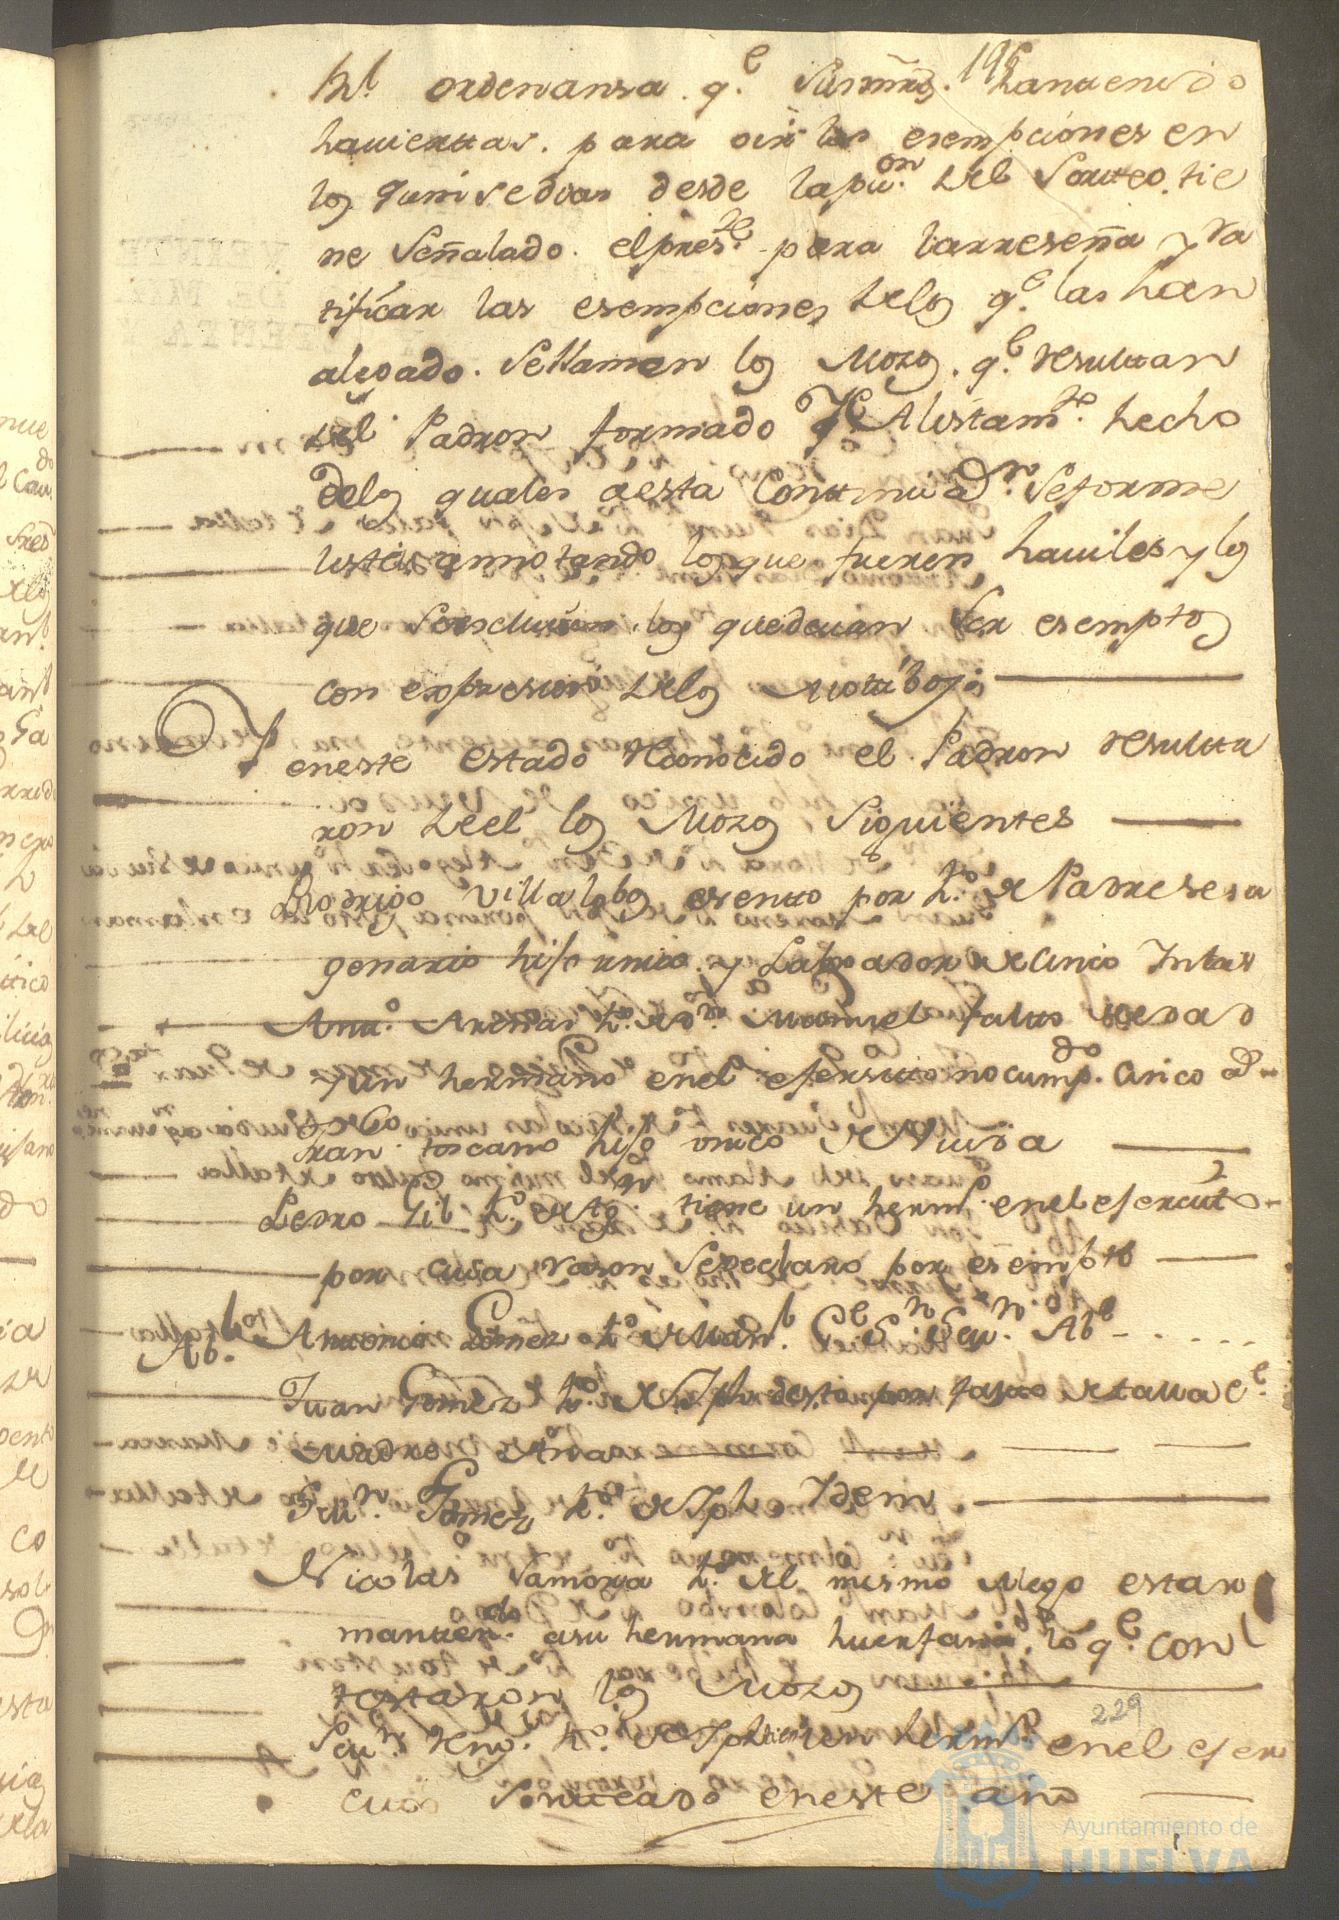 195
Rl. ordenansa q.e Sus mrds. han tenido
haviertas. para oir las esempciones en
los quinse dias desde la pu.on del Sorteo. tie
ne Señalado. el pres.te para la rreseña y ra
tificar las esempciones de los q.e las han
alegado. Se llamen los Mozos. q.e resultan
del Padron formado Alistam.to hecho
de los quales a esta Continuad.n Se forme
lista annotando los que fueren haviles y los
que los que devan Ser esemptos
con expresion de los Motibos
en este estado Reconocido el Padron resulta
ron de el los Mozos Siguientes
Rodrigo Villalobos esento por h.o de Padre sexa
genario hijo unico y Labrador de Cinco Iuntas
Ant.o Arenas h.o de Manuel falto de edad
y un hermano en el esersito no cump.do Cinco
Fran.co toscano hijo unico de Viuda
Pedro Gil h.o tiene un herm.o en el esercito
por cuia rason Se declaro por esempto
Ab.l Antonio Gomez h.o de Man.l Ab.l
Juan Gomez h.o de Jph. desto por falto de talla
Gomez h.o de Jph. Idem
Nicolas Samora h.o del mismo Alego estar
manten.do a su hermana huerfana, lo q.e con
testaron los Mozos
h.o de Jph tiene un herm.o en el eser
cito Sorteado en este año
229
Ayuntamiento de
HUELVA